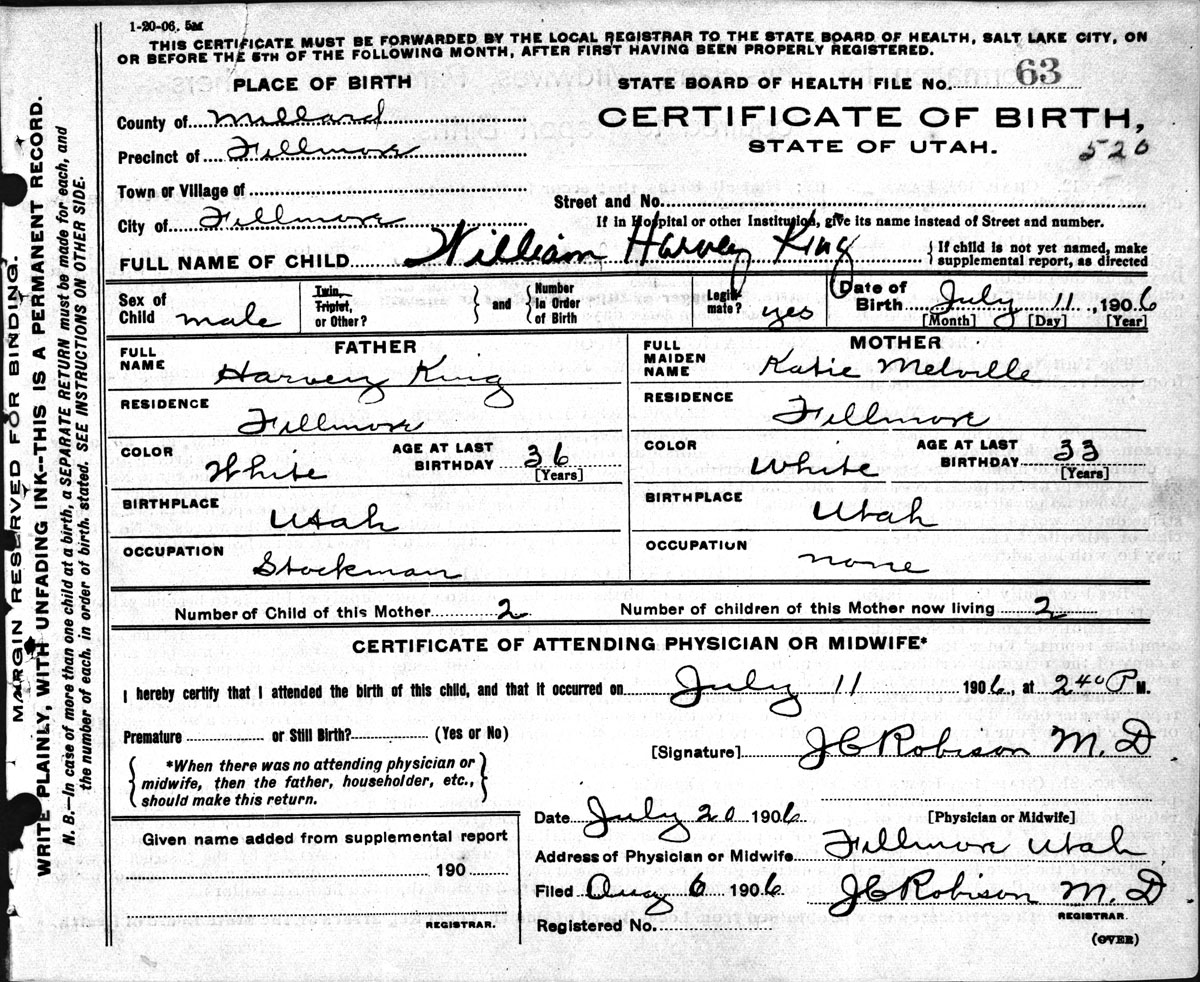 1-20-06. 5M
THIS CERTIFICATE MUST BE FORWARDED BY THE LOCAL REGISTRAR TO THE STATE BOARD OF HEALTH, SALT LAKE CITY, ON
OR BEFORE THE 5TH OF THE FOLLOWING MONTH, AFTER FIRST HAVING BEEN PROPERLY REGISTERED.
PLACE OF BIRTH
STATE BOARD OF HEALTH FILE No. 63
County of Millard
CERTIFICATE OF BIRTH,
Precinct of Fillmore
STATE OF UTAH.
520
Town or Village of
Street and No.
City of Fillmore
If in Hospital or other Institution, give its name instead of Street and number.
FULL NAME OF CHILD William Harvey King
If child is not yet named, make
supplemental report, as directed
Sex of Child male
Twin, Triplet, or Other?
and
Number in Order of Birth
Legitimate? yes
Date of Birth July 11, 1906
[Month] [Day] [Year]
FATHER
FULL NAME Harvey King
RESIDENCE Fillmore
COLOR White AGE AT LAST BIRTHDAY 36
[Years]
BIRTHPLACE Utah
OCCUPATION Stockman
MOTHER
FULL MAIDEN NAME Katie Melville
RESIDENCE Fillmore
COLOR White AGE AT LAST BIRTHDAY 33
[Years]
BIRTHPLACE Utah
OCCUPATION none
Number of Child of this Mother 2 Number of children of this Mother now living 2
CERTIFICATE OF ATTENDING PHYSICIAN OR MIDWIFE*
I hereby certify that I attended the birth of this child, and that it occurred on July 11 1906, at 2 40 P M.
Premature or Still Birth? (Yes or No)
[Signature] J C Robison M. D
*When there was no attending physician or
midwife, then the father, householder, etc.,
should make this return.
Date July 20 1906
[Physician or Midwife]
Given name added from supplemental report
190
REGISTRAR.
Address of Physician or Midwife Fillmore Utah
Filed Aug 6 1906 J C Robison M. D
REGISTRAR.
Registered No.
(OVER)
MARGIN RESERVED FOR BINDING.
WRITE PLAINLY, WITH UNFADING INK--THIS IS A PERMANENT RECORD.
N. B.—In case of more than one child at a birth, a SEPARATE RETURN must be made for each, and
the number of each, in order of birth, stated. SEE INSTRUCTIONS ON OTHER SIDE.